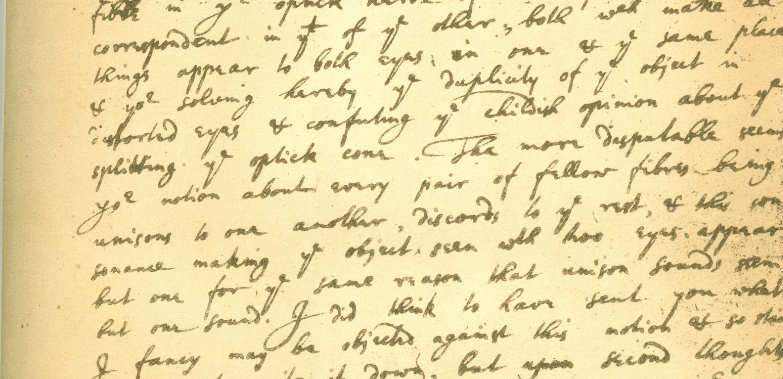 fibre in yᵉ optick nerve
correspondent in yᵗ of yᵉ other, both wᶜʰ make all
things appear to both eyes in one & yᵉ same place
& yoʳ solving hereby yᵉ duplicity of yᵉ object in
distorted eyes & confuting yᵉ childish opinion about yᵉ
splitting yᵉ optick cone. The more disputable seems
yoʳ notion about every pair of fellow fibres being
unisons to one another, discords to yᵉ rest, & this con
sonance making yᵉ object seen wᵗʰ two eyes appear
but one for yᵉ same reason that unison sounds seem
but one sound. I did think to have sent you what
I fancy may be objected against this notion & so
it down, but upon second thoughts